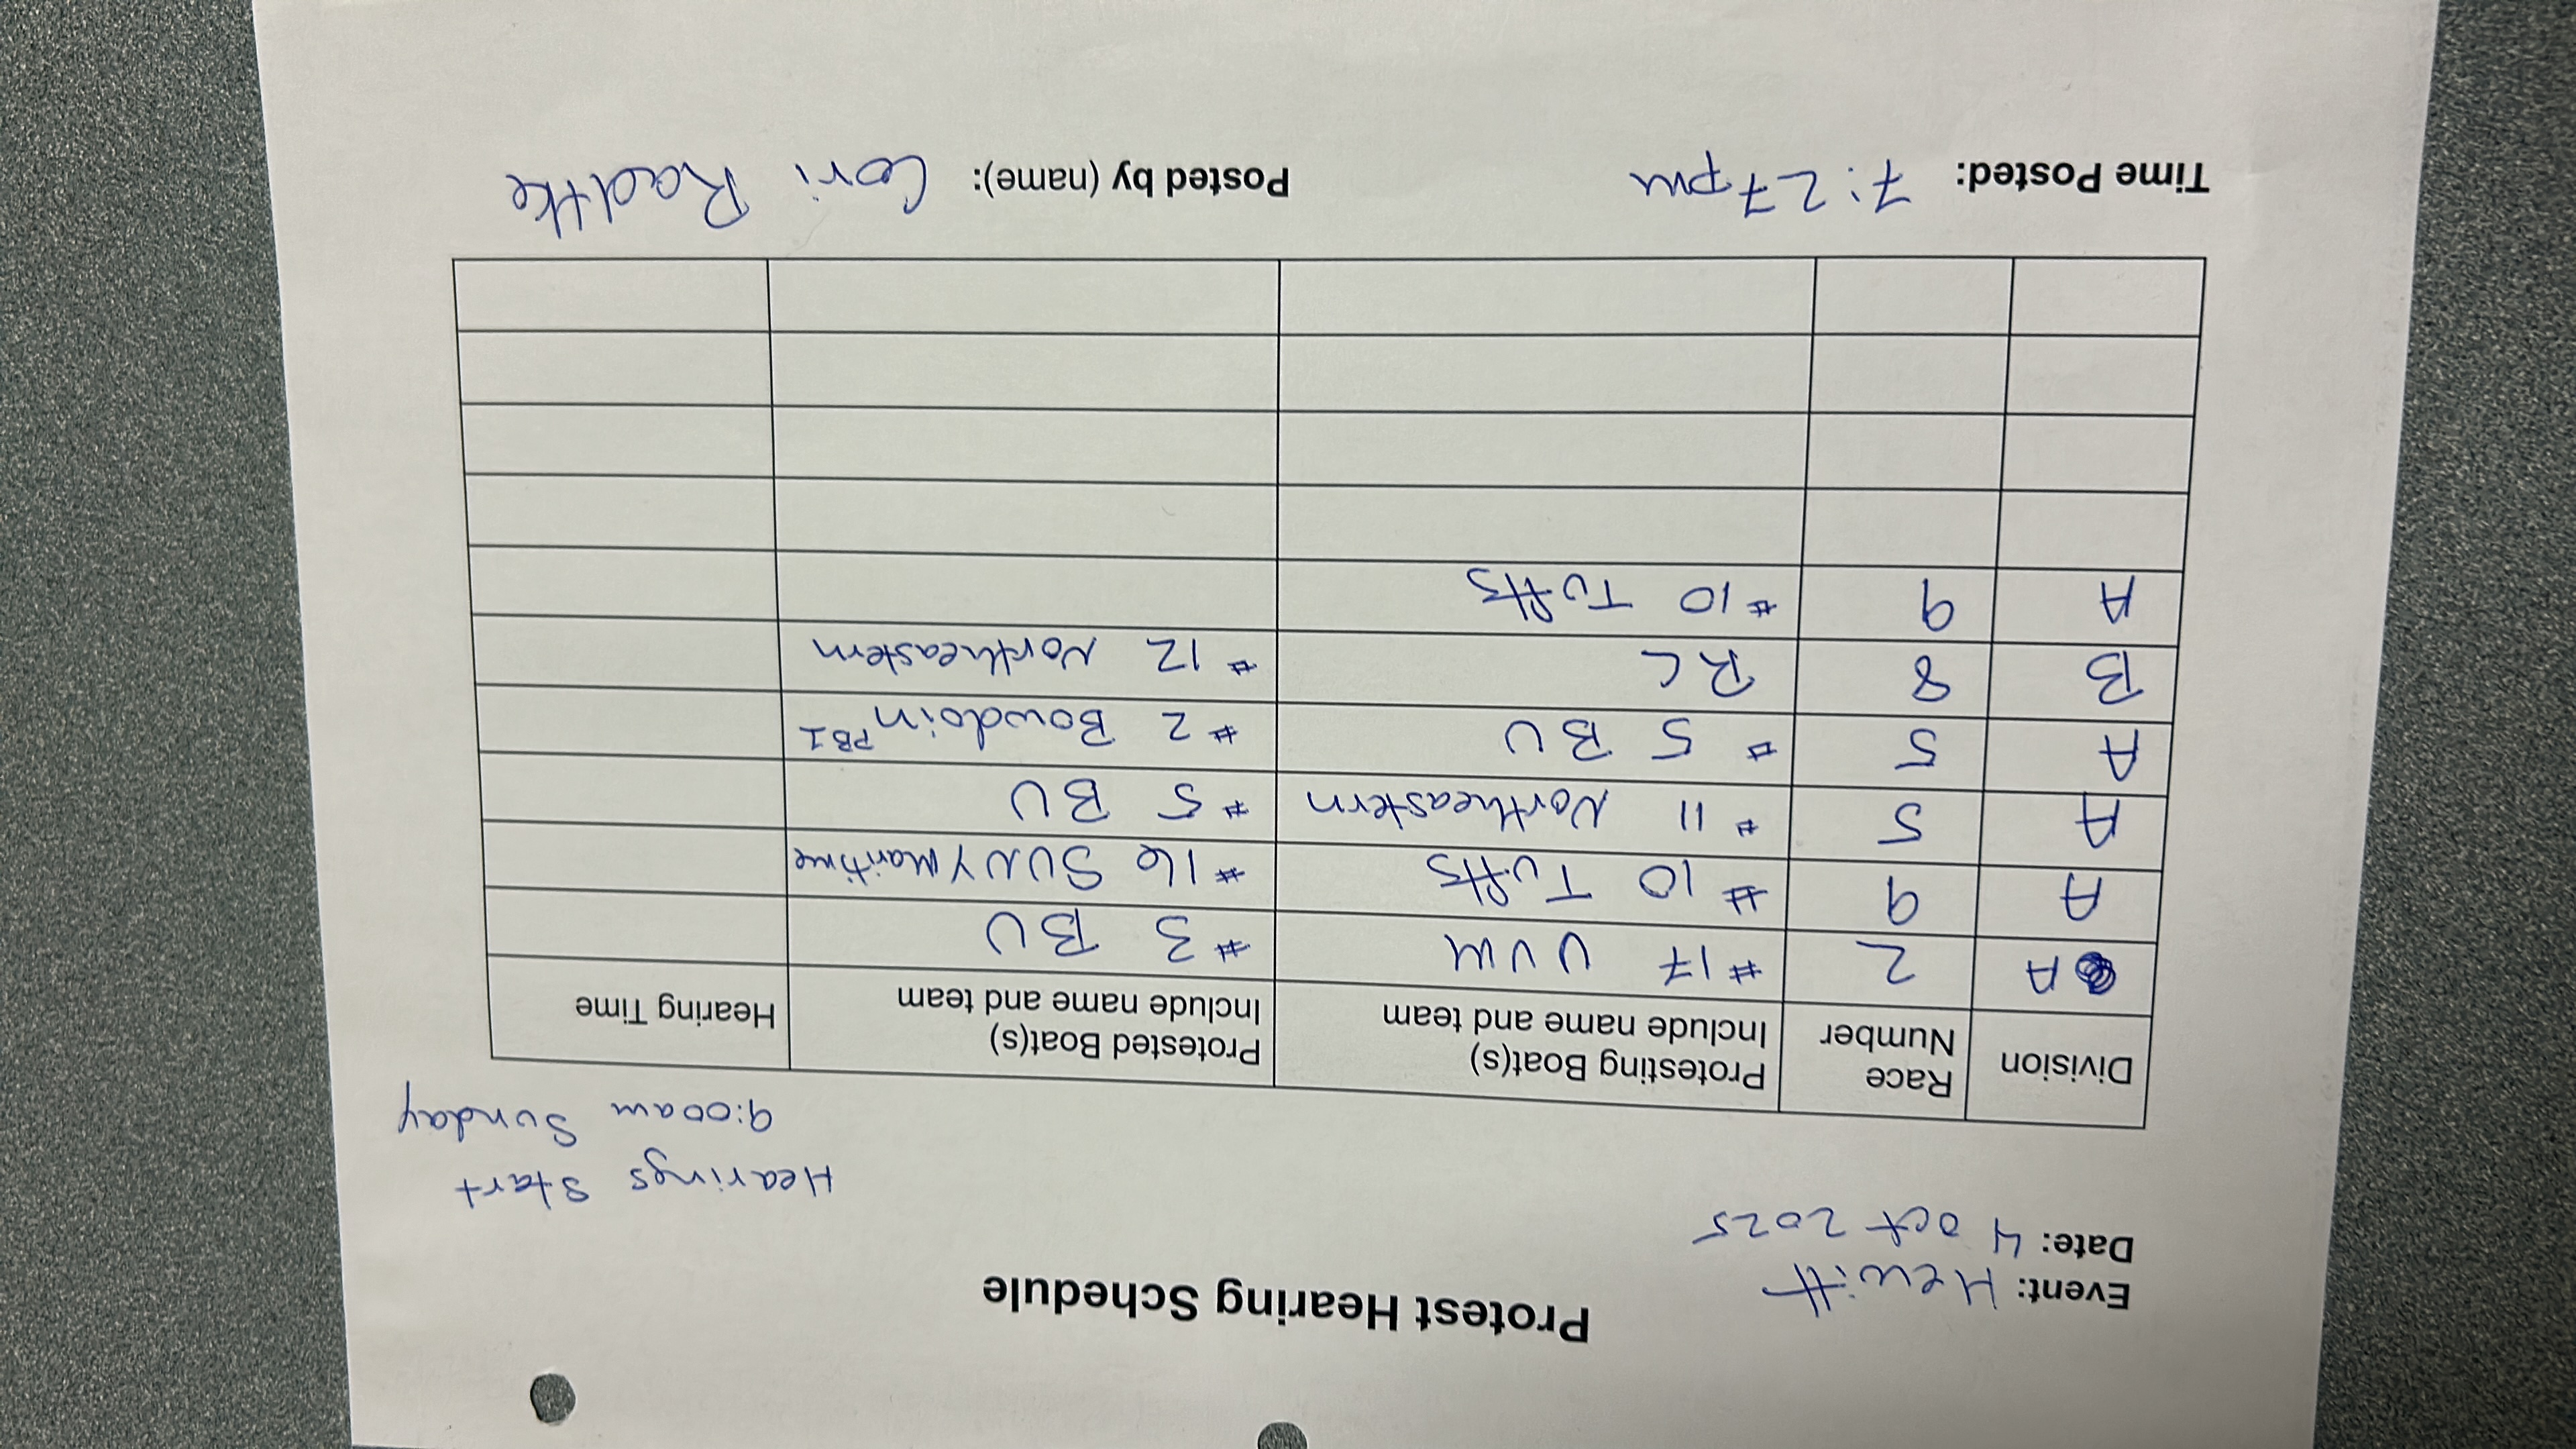 Protest Hearing Schedule
Event: Hewitt
Date: 4 Oct 2025
Hearings Start
9:00am Sunday
Division Race Number Protesting Boat(s) Include name and team Protested Boat(s) Include name and team Hearing Time
A 2 #17 UVM #3 BU
A 9 #10 Tufts #16 SUNY Maritime
A 5 #11 Northeastern #5 BU
A 5 #5 BU #2 Bowdoin PB1
B 8 RC #12 Northeastern
A 9 #10 Tufts
Time Posted: 7:27pm Posted by (name): Cori Radtke